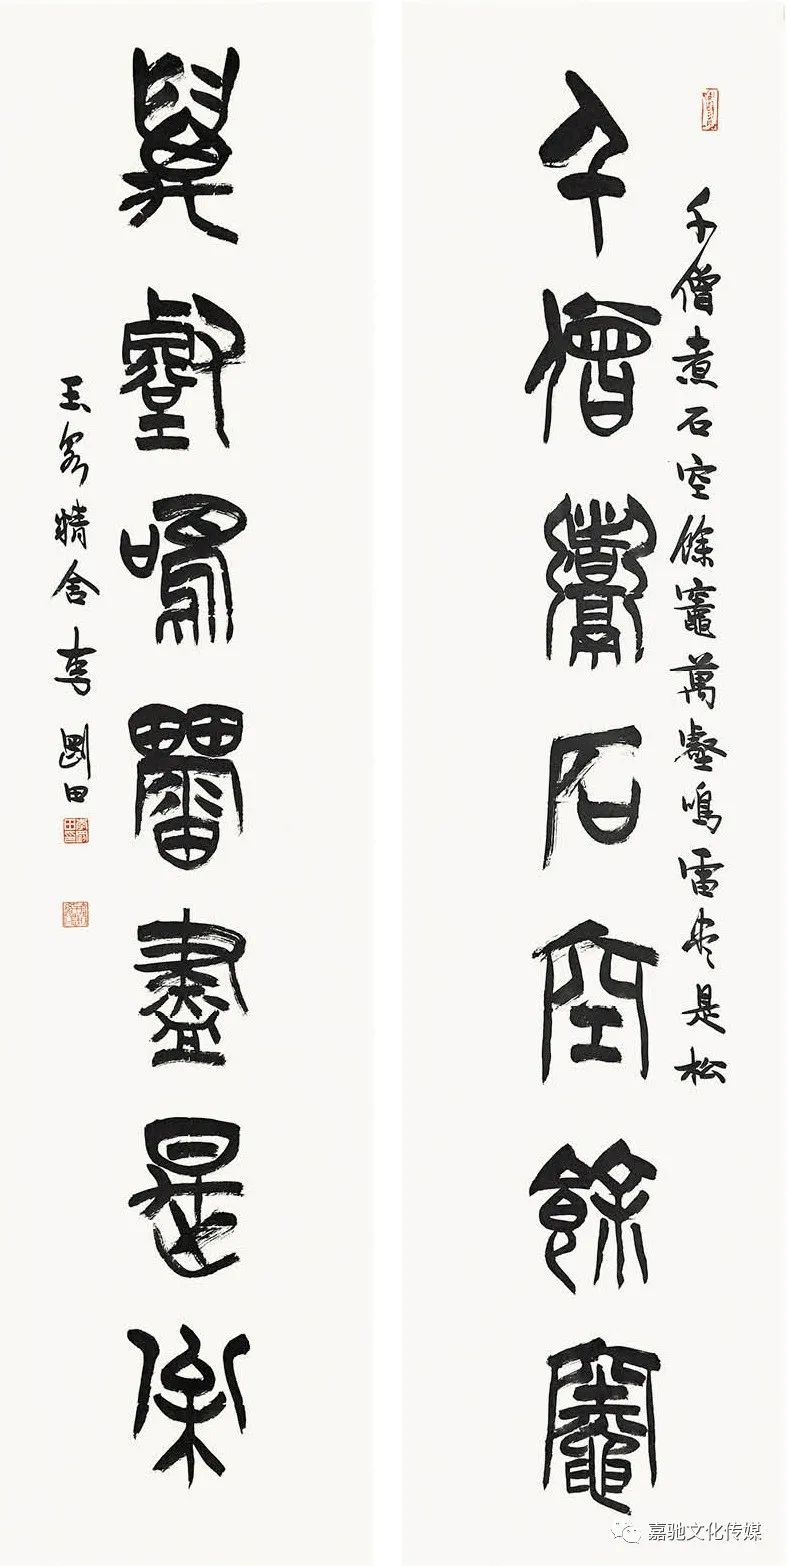 千僧煮石空餘竈萬壑鳴雷盡是松
千僧煮石空餘竈
萬壑鳴雷盡是松
精舍李剛田
嘉驰文化传媒